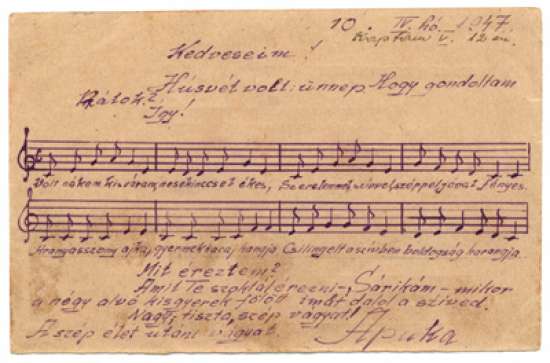 10. IV. hó. 1947.
Kaptam V. 12 én.
Kedveseim!
Húsvét volt: ünnep Hogy gondoltam
Rátok?
Így!
Volt nékem kis váram, mesekinccsel ékes, Szeretemmel, színnel, széppel, jóval fényes.
Aranyasszony ajka, gyermek kacaj hangja Csilingelt a szívben boldogság harangja.
Mit éreztem?
Amit Te szoktál érezni, Sárikám - mikor
a négy alvó kisgyerek fölött imát dalol a szíved.
Nagy, tiszta, szép vágyat!
A szép élet utáni vágyat. Apuka